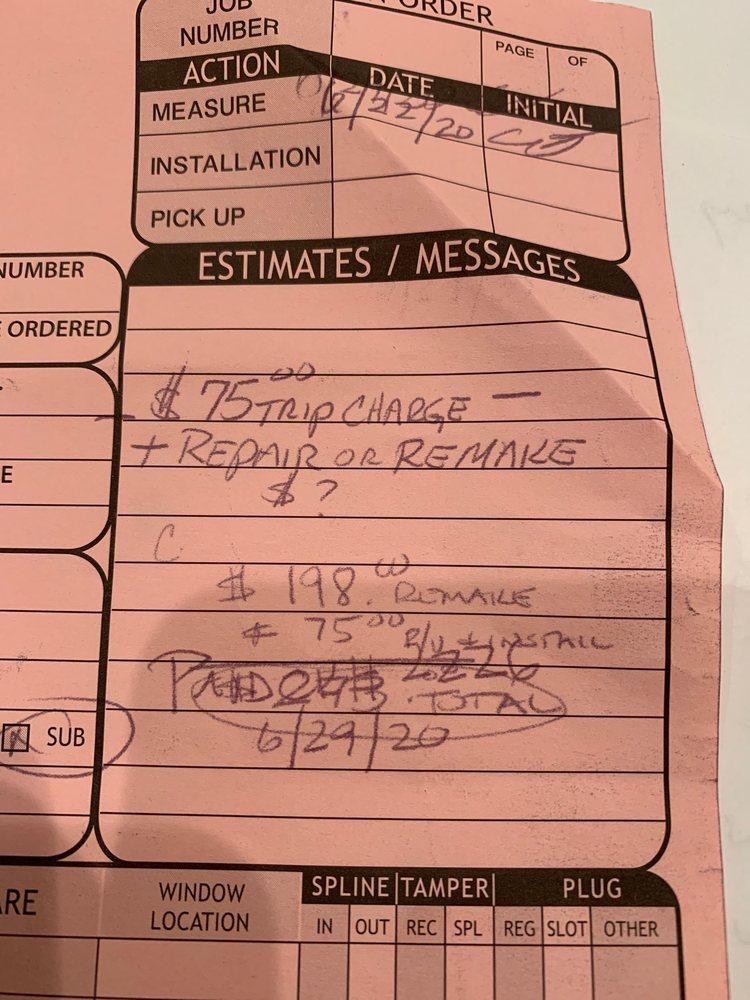 JOB
NUMBER
ORDER
PAGE OF
ACTION DATE INITIAL
MEASURE
INSTALLATION
PICK UP
ESTIMATES / MESSAGES
NUMBER
ORDERED
- $75.00 TRIP CHARGE -
+ REPAIR OR REMAKE
$ ?
C
$ 198.00 REMAKE
75.00 P/U + INSTALL
PAID TOTAL
6/29/20
E
SUB
ARE
WINDOW
LOCATION
SPLINE TAMPER PLUG
IN OUT REC SPL REG SLOT OTHER